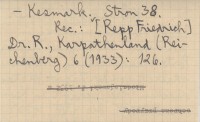 – Kesmark. Stron 38.
Rec.: "[Repp Friedrich]
Dr. R., Karpathenland (Rei-
chenberg) 6 (1933): 126.